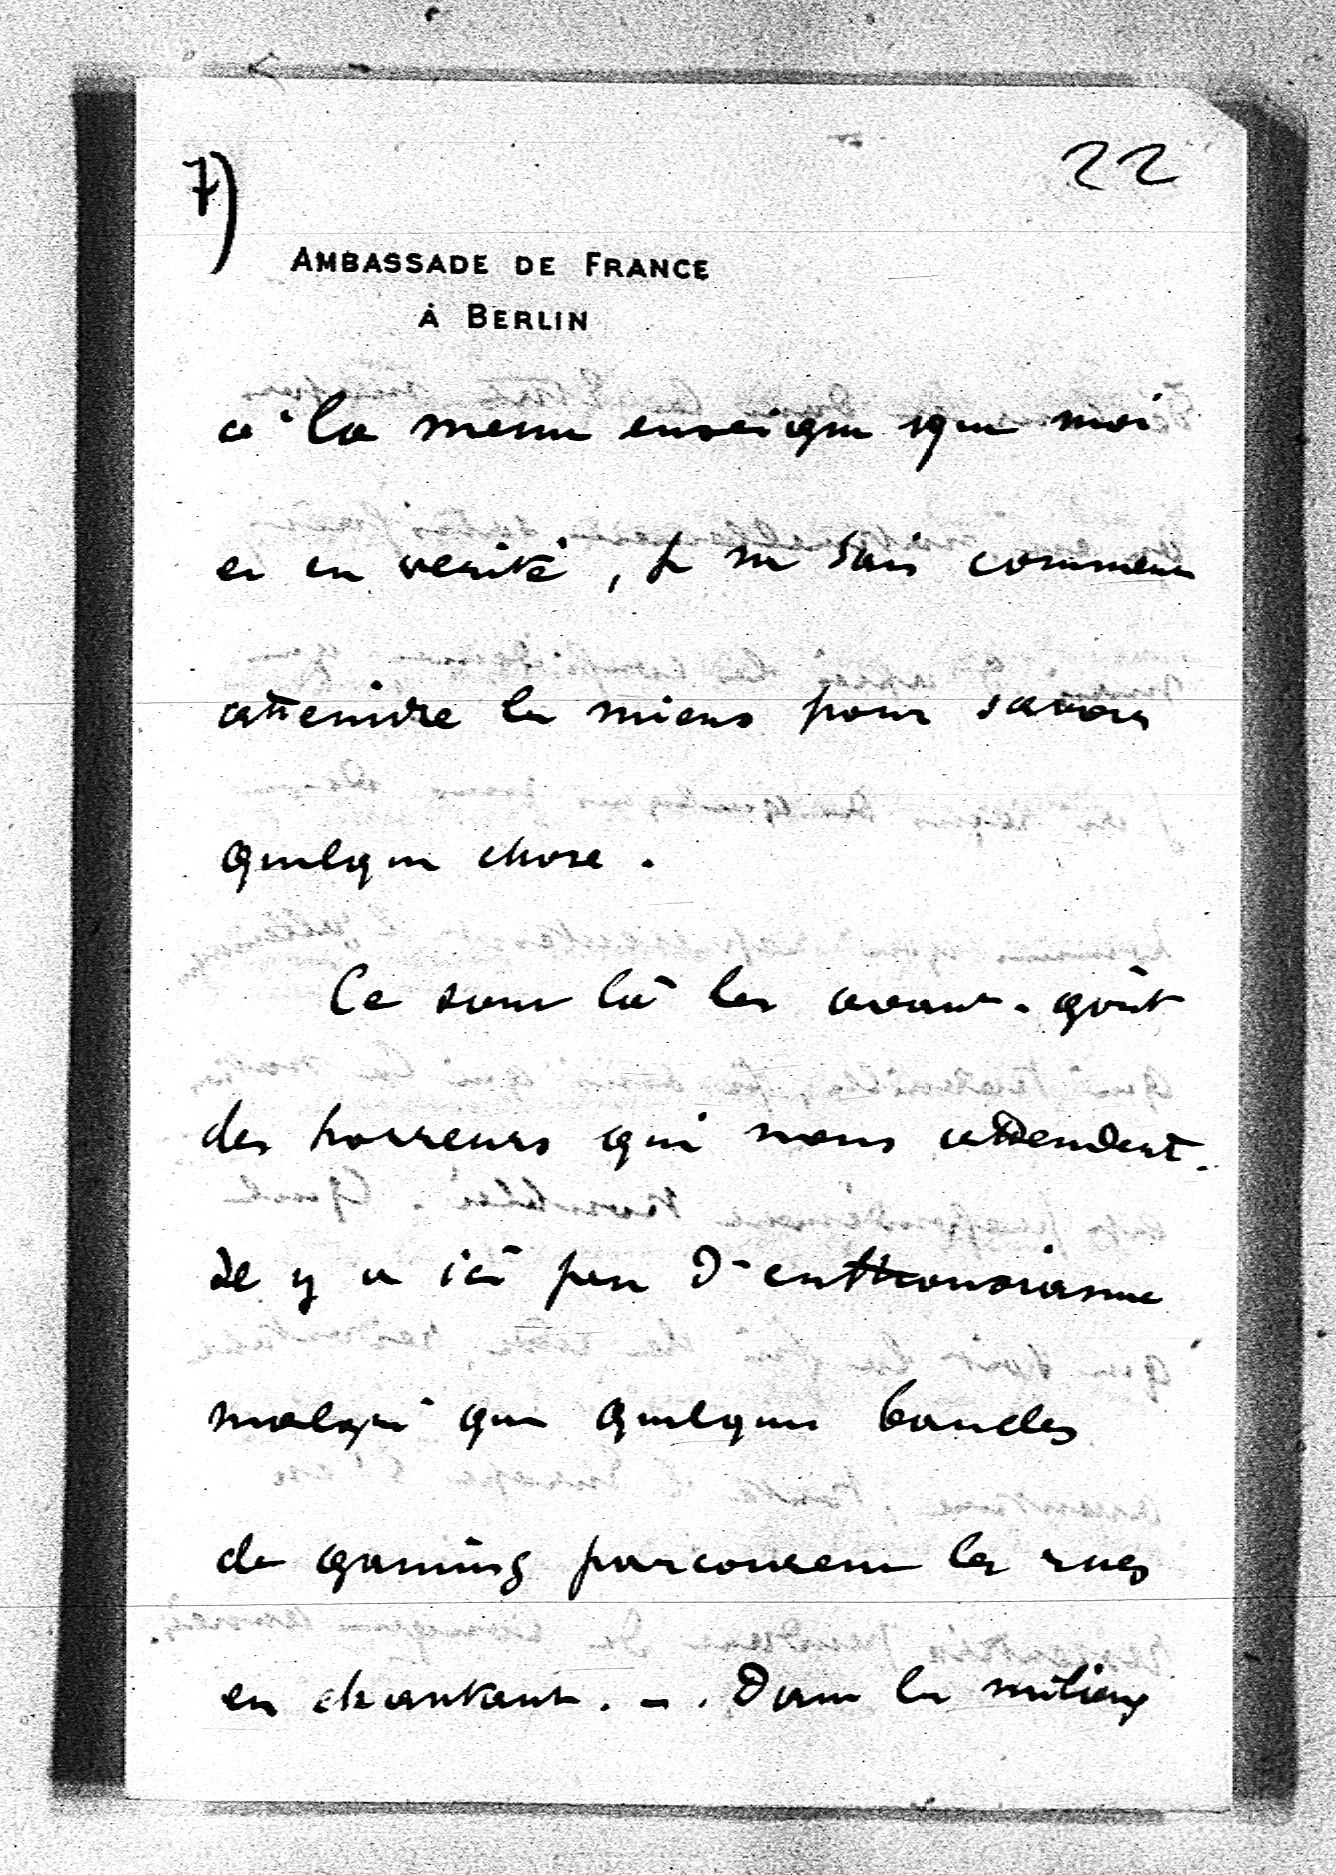 7)
22
AMBASSADE DE FRANCE
À BERLIN
à la meme enseigne que moi
et en verité, je ne sais comment
atteindre les miens pour savoir
quelque chose.
Ce sont là les avant-goût
des horreurs qui nous attendent.
Il y a ici peu d'enthousiasme
malgré que quelques bandes
de gamins parcourent les rues
en chantant. - . Dans les milieux